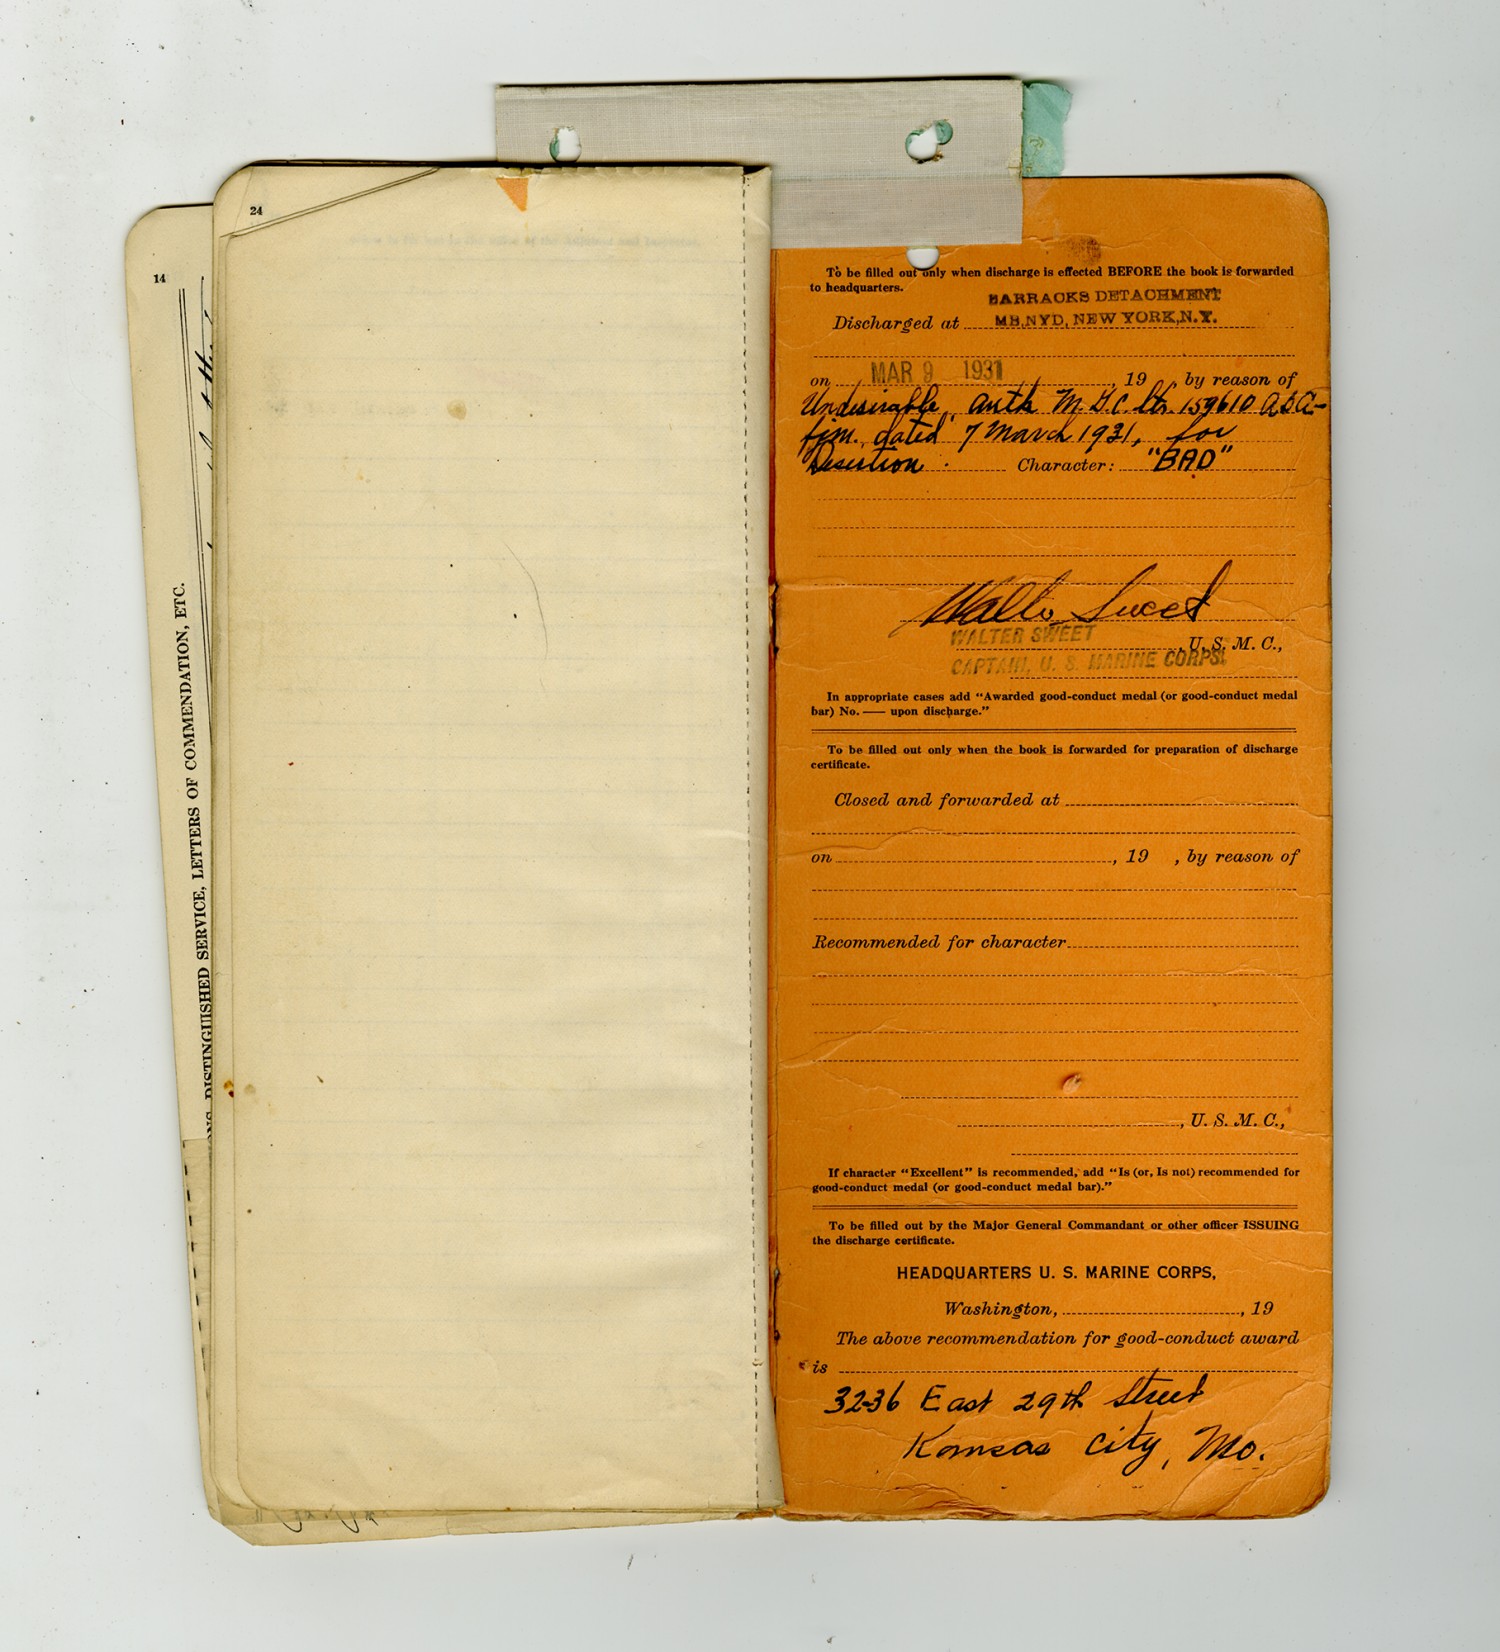 24
14
NS, DISTINGUISHED SERVICE, LETTERS OF COMMENDATION, ETC.
To be filled out only when discharge is effected BEFORE the book is forwarded
to headquarters.
BARRACKS DETACHMENT
Discharged at MB, NYD, NEW YORK, N.Y.
on MAR 9 1931, 19 , by reason of
Undesirable, auth M.G.C. ltr. 159610 ASA-
fjm. dated 7 March 1931, for
Desertion. Character: "BAD"
Walter Sweet
WALTER SWEET
, U. S. M. C.,
CAPTAIN, U. S. MARINE CORPS.
In appropriate cases add "Awarded good-conduct medal (or good-conduct medal
bar) No. — upon discharge."
To be filled out only when the book is forwarded for preparation of discharge
certificate.
Closed and forwarded at
on , 19 , by reason of
Recommended for character
, U. S. M. C.,
If character "Excellent" is recommended, add "Is (or, Is not) recommended for
good-conduct medal (or good-conduct medal bar)."
To be filled out by the Major General Commandant or other officer ISSUING
the discharge certificate.
HEADQUARTERS U. S. MARINE CORPS,
Washington, , 19
The above recommendation for good-conduct award
is
3236 East 29th Street
Kansas City, Mo.